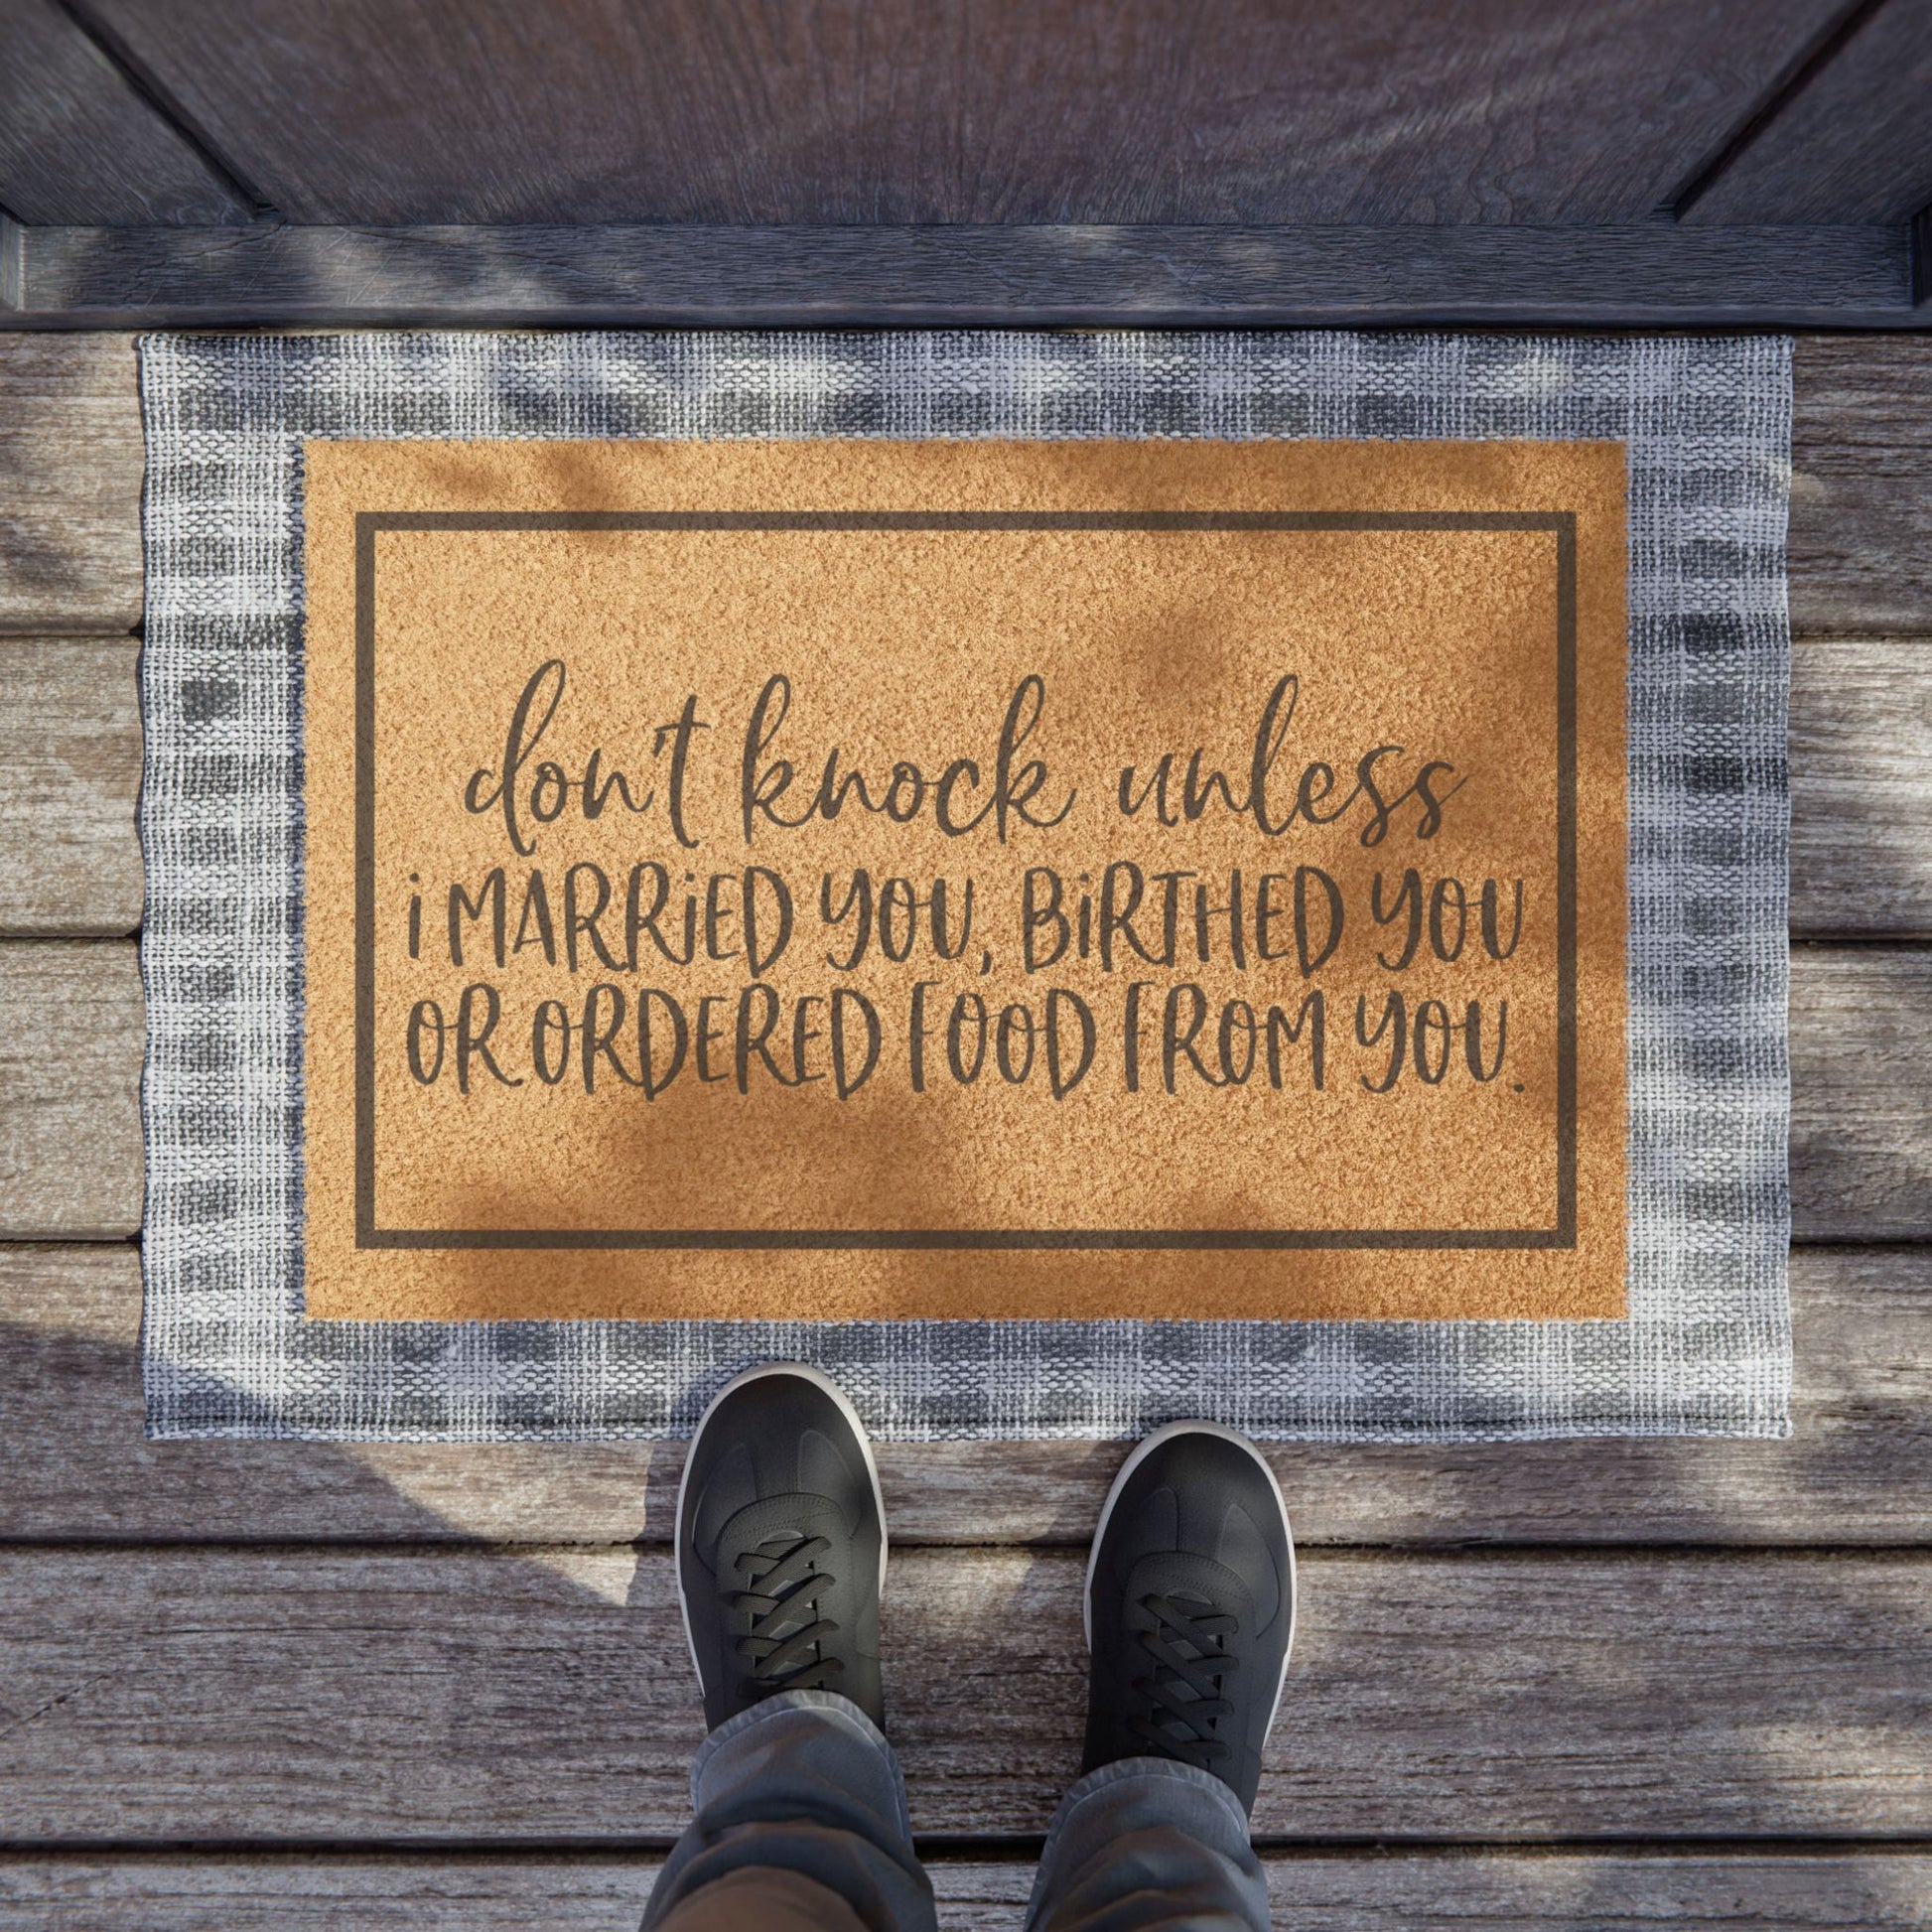 don't knock unless
i MARRiED YOU, BiRTHED YOU
OR ORDERED FOOD FROM YOU.